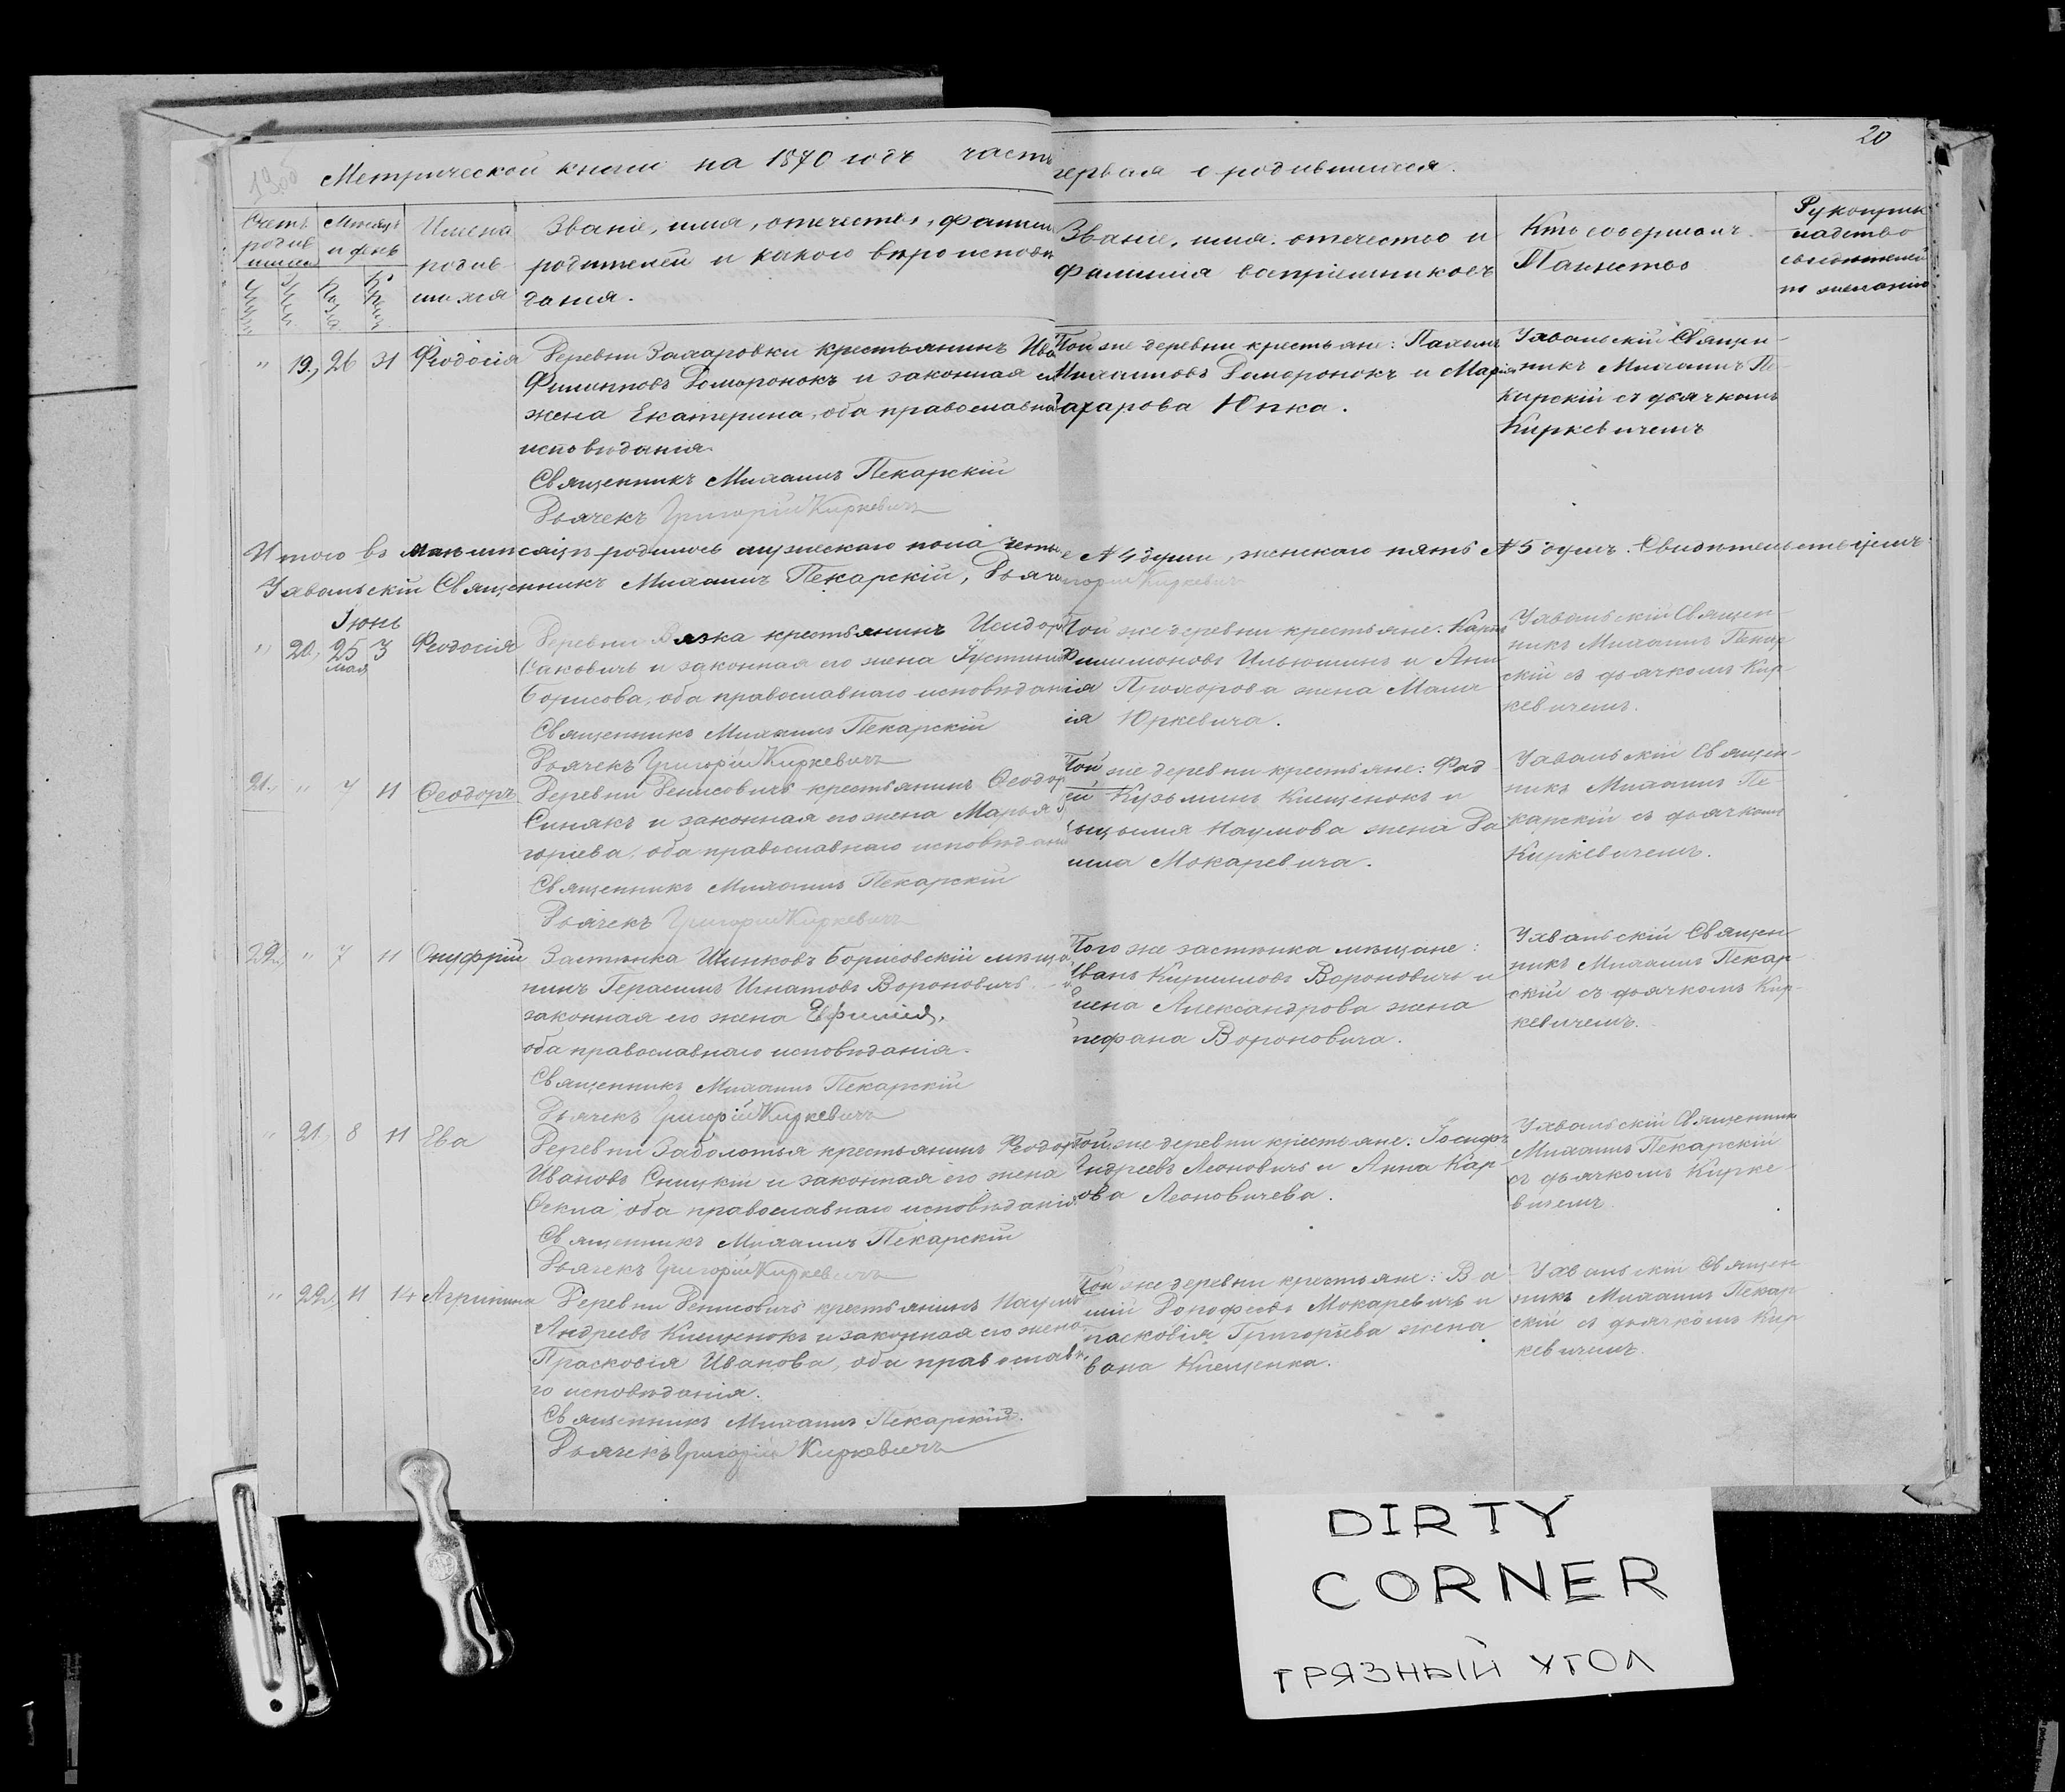 20
Метрической книги на 1870 годъ часть первая о родившихся.
Счетъ родившихся
Мѣсяцъ и день
Имена родившихся
Званіе, имя, отечество, фамилія родителей и какого вѣроисповѣданія.
Званіе, имя, отечество и фамилія воспріемниковъ
Кто совершалъ Таинство
Рукоприкладство свидѣтелей по желанію
" 19., 26 31 Феодосія
Деревни Захаровки крестьянинъ Ива
Филиповъ Доморонокъ и законная
жена Екатерина, оба православна
исповѣданія.
Священникъ Михаилъ Пекарскій
Дьячекъ Григорій Киркевичъ
Той же деревни крестьяне:
Михаиловъ Доморонокъ и Марія
Захарова Юпка.
Ухвальскій Священ-
никъ Михаилъ Пе-
карскій съ дьячкомъ
Киркевичемъ
Итого въ маѣ мѣсяцѣ родилось мужескаго пола четы № 4 души, женскаго пять № 5 душъ. Свидѣтельствуемъ:
Ухвальскій Священникъ Михаилъ Пекарскій, Дьяч Григорій Киркевичъ
Іюнь
" 20, 25 3 Феодосія
мая
Деревни Вязка крестьянинъ Исидор
Саковичъ и законная его жена Іустинія
Борисова, оба православнаго исповѣданія
Священникъ Михаилъ Пекарскій
Дьячекъ Григорій Киркевичъ
Той же деревни крестьяне: Карпъ
Филимоновъ Ильюшинъ и
Прохорова жена
Юркевича.
Ухвальскій Священ-
никъ Михаилъ Пекар
скій съ дьячкомъ Кир-
кевичемъ.
21., " 7 11 Ѳеодоръ
Деревни Денисовичъ крестьянинъ Ѳеодор
Синякъ и законная его жена Марья
горіева, оба православнаго исповѣдан
Священникъ Михаилъ Пекарскій
Дьячекъ Григорій Киркевичъ
Той же деревни крестьяне: Фад
ей Кузьминъ Клещенокъ и
Наумова жена Да
Мокаревича.
Ухвальскій Священ-
никъ Михаилъ Пе-
карскій съ дьячкомъ
Киркевичемъ.
22., " 7 11 Онуфрій
Застѣнка Шинковъ Борисовскій мѣща
нинъ Герасимъ Игнатовъ Вороновичъ и
законная его жена Ефимія,
оба православнаго исповѣданія.
Священникъ Михаилъ Пекарскій
Дьячекъ Григорій Киркевичъ
Того же застѣнка мѣщане:
Иванъ Кириловъ Вороновичъ и
Елена Александрова жена
Стефана Вороновича.
Ухвальскій Священ
никъ Михаилъ Пекар-
скій съ дьячкомъ Кир-
кевичемъ.
" 21, 8 11 Ева
Деревни Заболотья крестьянинъ Феодор
Ивановъ Сницкій и законная его жена
Ѳекла, оба православнаго исповѣданія
Священникъ Михаилъ Пекарскій
Дьячекъ Григорій Киркевичъ
Той же деревни крестьяне: Іосифъ
Андреевъ Леоновичъ и Анна Кар-
ова Леоновичева.
Ухвальскій Священникъ
Михаилъ Пекарскій
съ дьячкомъ Кирке-
вичемъ
" 22, 11 14 Агрипина
Деревни Денисовичъ крестьянинъ Наумъ
Андреевъ Клещенокъ и законная его жена
Прасковія Иванова, оба православн
го исповѣданія.
Священникъ Михаилъ Пекарскій.
Дьячекъ Григорій Киркевичъ
Той же деревни крестьяне:
Дорофеевъ Мокаревичъ и
Прасковія Григорьева жена
Ивана Клещенка.
Ухвальскій Священ
никъ Михаилъ Пекар
скій съ дьячкомъ Кир
кевичемъ.
DIRTY
CORNER
ГРЯЗНЫЙ УГОЛ